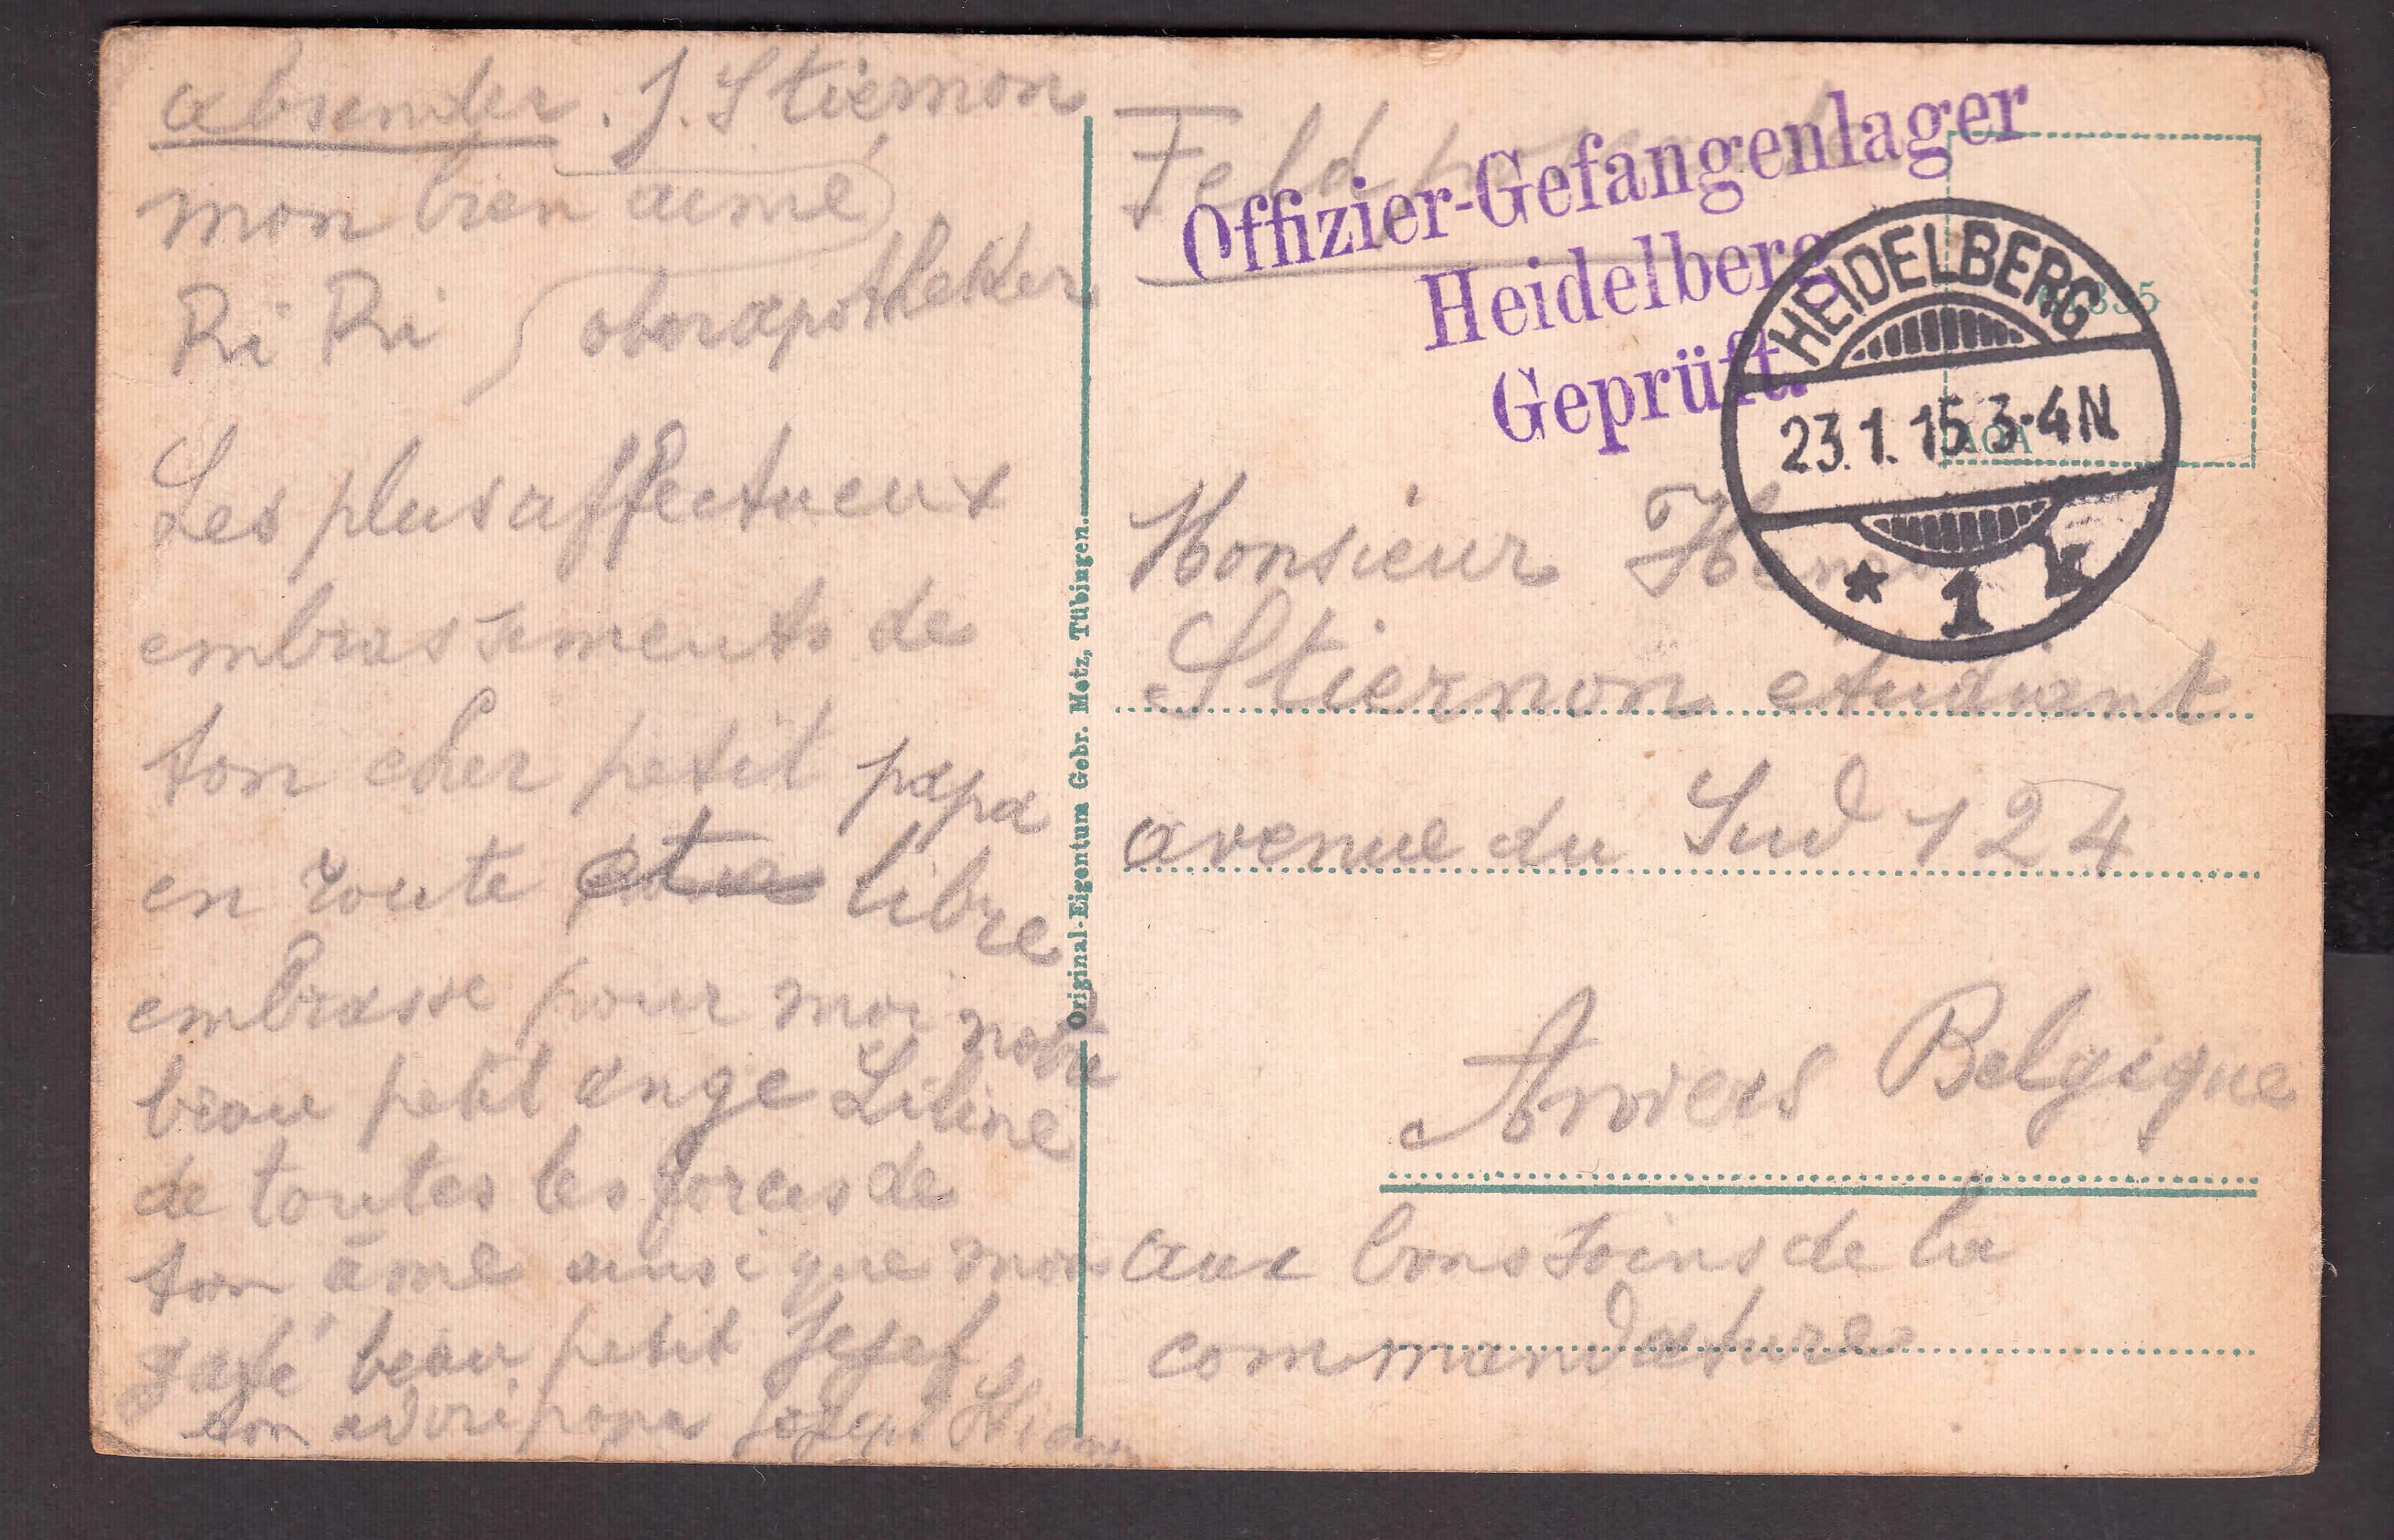 absender. J. Stiernon
mon bien aimé
Ri Ri oberapotheker
Les plus affectueux
embrassements de
ton cher petit papa
en route libre
embrasse pour moi notre
beau petit ange Liline
de toutes les forces de
ton âme ainsi que mon
beau petit Jejef
ton adoré papa Joseph Stiernon
Original-Eigentum Gebr. Metz, Tübingen.
Feldpost
Offizier-Gefangenlager
Heidelberg
Geprüft.
HEIDELBERG
23.1.15.3-4N
* 1
Monsieur Henri
Stiernon etudiant
avenue du Sud 124
Anvers Belgique
aux bons soins de la
commandature